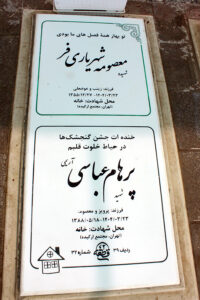 تو بهار همهٔ فصل های ما بودی
شهید
معصومه شهریاری فر
فرزند: زینب و عوضعلی
۱۳۵۵/۱۲/۲۲ - ۱۴۰۴/۰۳/۲۳
محل شهادت: خانه
(تهران، مجتمع ارکیده)
خنده ات جشن گنجشک‌ها
در حیاط خلوت قلبم
شهید
پرهام عباسی
فرزند: پرویز و معصومه
۱۳۸۸/۰۵/۱۸ - ۱۴۰۴/۰۳/۲۳
محل شهادت: خانه
(تهران، مجتمع ارکیده)
ردیف ۳۹ شماره ۳۷